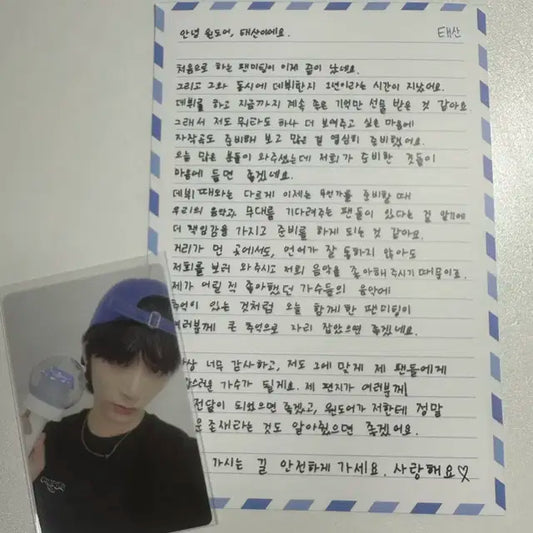 태산
안녕 원도어, 태산이에요.
처음으로 하는 팬미팅이 이제 끝이 났네요.
그리고 그와 동시에 데뷔한지 1년이라는 시간이 지났어요.
데뷔를 하고 지금까지 계속 좋은 기억만 선물 받은 것 같아요
그래서 저도 뭐라도 하나 더 보여주고 싶은 마음에
자작곡도 준비해 보고 많은 걸 열심히 준비했어요.
오늘 많은 분들이 와주셨는데 저희가 준비한 것들이
마음에 들면 좋겠네요.
데뷔 때와는 다르게 이제는 무언가를 준비할 때
우리의 음악과 무대를 기다려주는 팬들이 있다는 걸 알기에
더 책임감을 가지고 준비를 하게 되는 것 같아요.
거리가 먼 곳에서도, 언어가 잘 통하지 않아도
저희를 보러 와주시고 저희 음악을 좋아해 주시기 때문이죠.
제가 어릴 적 좋아했던 가수들의 음악에
추억이 있는 것처럼 오늘 함께한 팬미팅이
여러분께 큰 추억으로 자리 잡았으면 좋겠네요.
항상 너무 감사하고, 저도 그에 맞게 제 팬들에게
가수가 될게요. 제 편지가 여러분께
전달이 되었으면 좋겠고, 원도어가 저한테 정말
존재라는 것도 알아줬으면 좋겠어요.
가시는 길 안전하게 가세요. 사랑해요♡